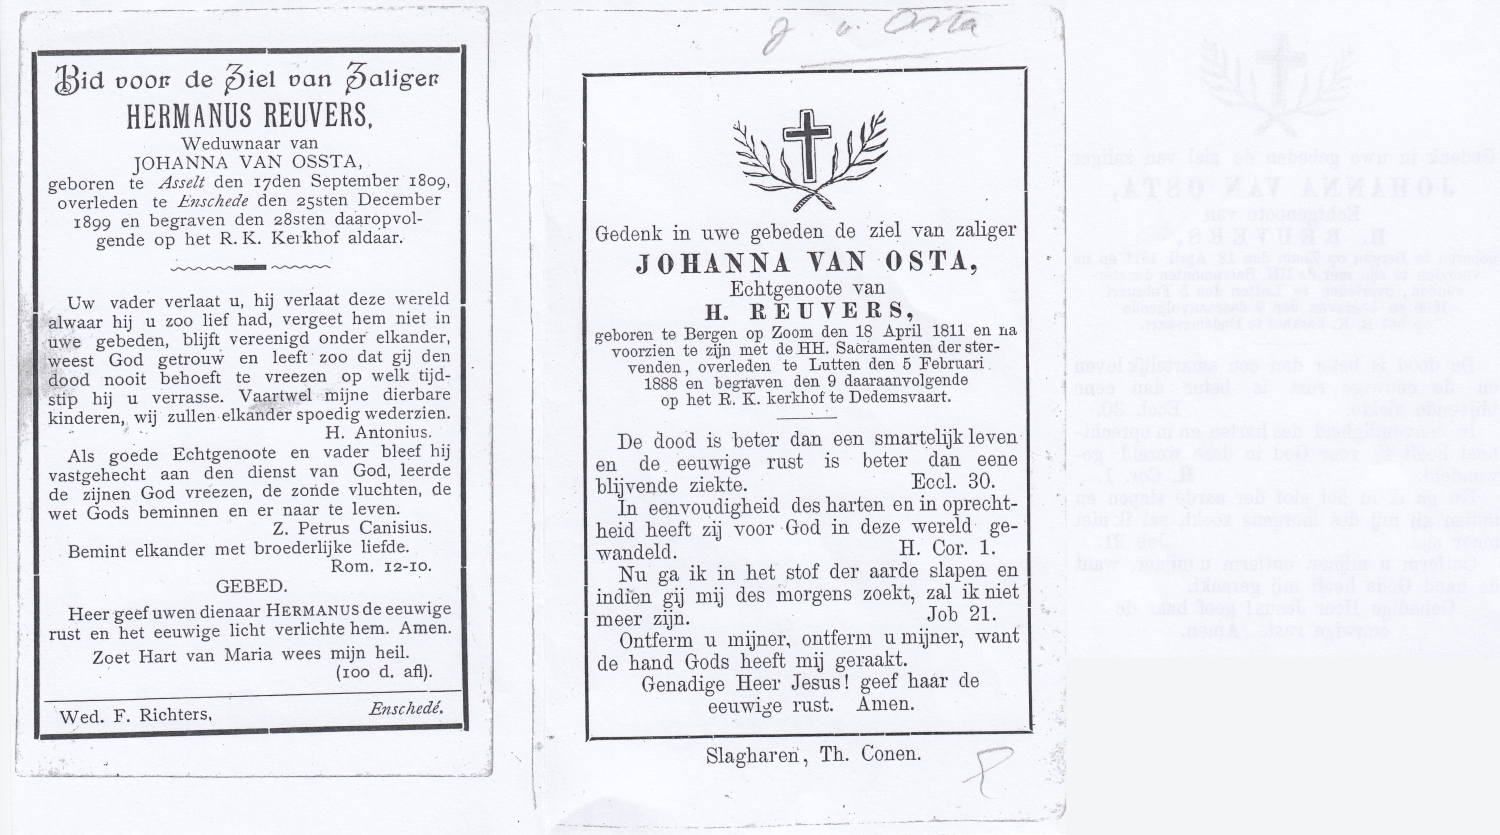 Bid voor de Ziel van Zaliger
HERMANUS REUVERS,
Weduwnaar van
JOHANNA VAN OSSTA,
geboren te Asselt den 17den September 1809,
overleden te Enschede den 25sten December
1899 en begraven den 28sten daaropvol-
gende op het R. K. Kerkhof aldaar.
Uw vader verlaat u, hij verlaat deze wereld
alwaar hij u zoo lief had, vergeet hem niet in
uwe gebeden, blijft vereenigd onder elkander,
weest God getrouw en leeft zoo dat gij den
dood nooit behoeft te vreezen op welk tijd-
stip hij u verrasse. Vaartwel mijne dierbare
kinderen, wij zullen elkander spoedig wederzien.
H. Antonius.
Als goede Echtgenoote en vader bleef hij
vastgehecht aan den dienst van God, leerde
de zijnen God vreezen, de zonde vluchten, de
wet Gods beminnen en er naar te leven.
Z. Petrus Canisius.
Bemint elkander met broederlijke liefde.
Rom. 12-10.
GEBED.
Heer geef uwen dienaar HERMANUS de eeuwige
rust en het eeuwige licht verlichte hem. Amen.
Zoet Hart van Maria wees mijn heil.
(100 d. afl).
Wed. F. Richters, Enschedé.
J. v. Osta
Gedenk in uwe gebeden de ziel van zaliger
JOHANNA VAN OSTA,
Echtgenoote van
H. REUVERS,
geboren te Bergen op Zoom den 18 April 1811 en na
voorzien te zijn met de HH. Sacramenten der ster-
venden, overleden te Lutten den 5 Februari
1888 en begraven den 9 daaraanvolgende
op het R. K. kerkhof te Dedemsvaart.
De dood is beter dan een smartelijk leven
en de eeuwige rust is beter dan eene
blijvende ziekte. Eccl. 30.
In eenvoudigheid des harten en in oprecht-
heid heeft zij voor God in deze wereld ge-
wandeld. H. Cor. 1.
Nu ga ik in het stof der aarde slapen en
indien gij mij des morgens zoekt, zal ik niet
meer zijn. Job 21.
Ontferm u mijner, ontferm u mijner, want
de hand Gods heeft mij geraakt.
Genadige Heer Jesus! geef haar de
eeuwige rust. Amen.
Slagharen, Th. Conen.